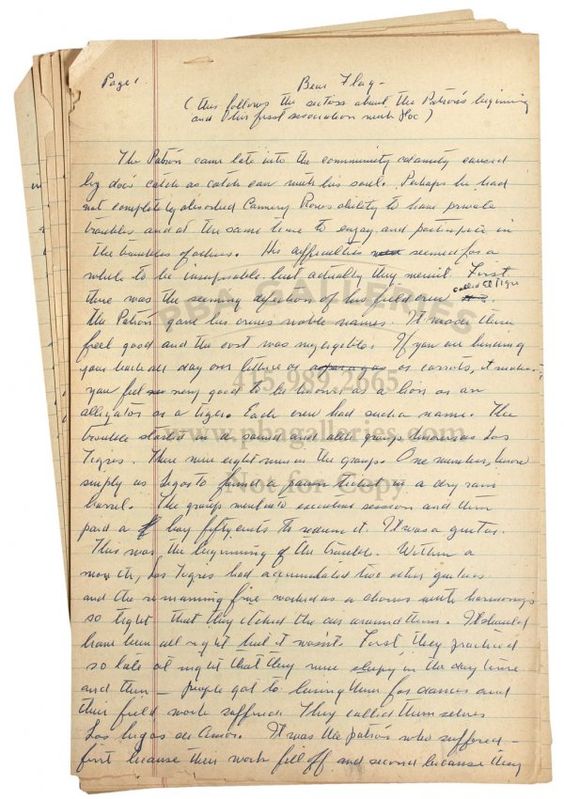 Page 1.
Bear Flag -
(this follows the section about the Patron's beginning
and his first association with Doc)
The Patrón came late into the community calamity caused
by doc's catch as catch can with his soul. Perhaps he had
not completely absorbed Cannery Rows ability to have private
troubles and at the same time to enjoy and participate in
the troubles of others. His difficulties seemed for a
while to be insuperable but actually they weren't. First
there was the seeming defection of his field crew called El Tigre
The Patrón gave his crews noble names. It made them
feel good and the cost was negligible. If you are bending
your back all day over lettuce or asparagus or carrots, it makes
you feel very good to be known as a lion or an
alligator or a tiger. Each crew had such a name. The
trouble started in a sound and able group known as Los
Tigres. There were eight men in the group. One member, known
simply as found a pawn ticket in a dry rain
barrel. The group and then
paid a boy fifty cents to redeem it. It was a guitar.
This was the beginning of the trouble. Within a
month, Los Tigres had accumulated two other guitars
and the remaining five worked as a chorus with harmonies
so tight that they itched the air around them. It should
have been all right but it wasn't. First, they practiced
so late at night that they were sleepy in the day time
and then — people got to hiring them for dances and
their field work suffered. They called themselves
Los de Amor. It was the patrón who suffered -
first because their work fell off and second because they
PBA GALLERIES
415.989.2665
www.pbagalleries.com
Not for Copy